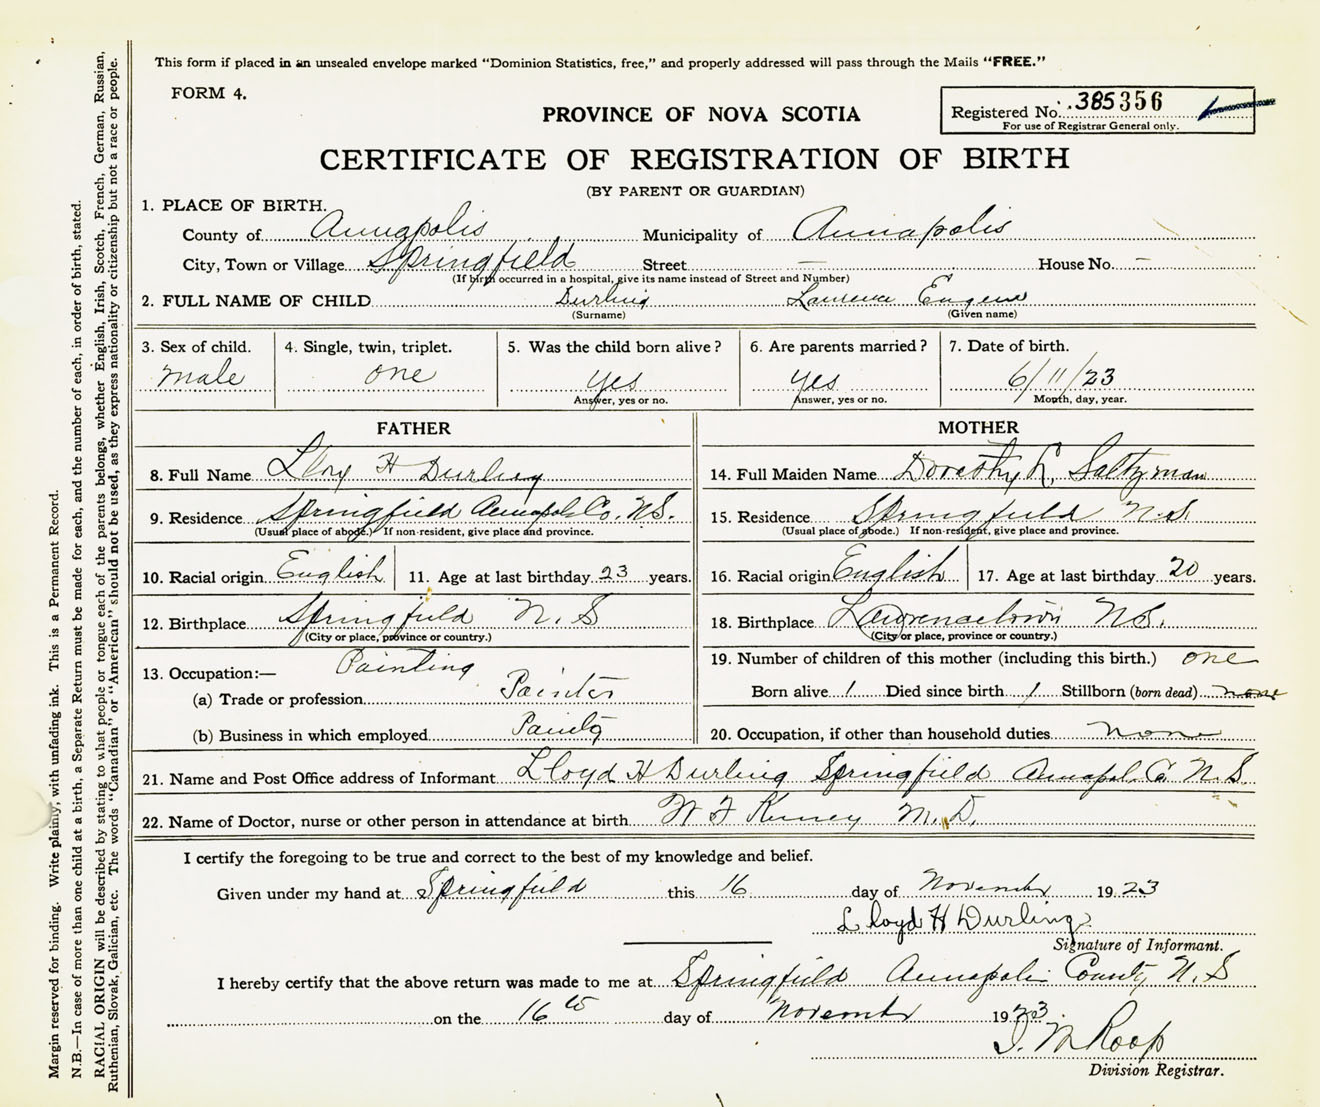 This form if placed in an unsealed envelope marked "Dominion Statistics, free," and properly addressed will pass through the Mails "FREE."
FORM 4.
Registered No. 385356
For use of Registrar General only.
PROVINCE OF NOVA SCOTIA
CERTIFICATE OF REGISTRATION OF BIRTH
(BY PARENT OR GUARDIAN)
1. PLACE OF BIRTH.
County of Annapolis Municipality of Annapolis
City, Town or Village Springfield Street — House No. —
(If birth occurred in a hospital, give its name instead of Street and Number)
2. FULL NAME OF CHILD Durling Laurence Eugene
(Surname) (Given name)
3. Sex of child. 4. Single, twin, triplet. 5. Was the child born alive? 6. Are parents married? 7. Date of birth.
male one yes yes 6/11/23
Answer, yes or no. Answer, yes or no. Month, day, year.
FATHER MOTHER
8. Full Name Lloy H Durling 14. Full Maiden Name Dorothy L. Saltzman
9. Residence Springfield Annapolis Co. N.S. 15. Residence Springfield N.S.
(Usual place of abode.) If non-resident, give place and province. (Usual place of abode.) If non-resident, give place and province.
10. Racial origin English 11. Age at last birthday 23 years. 16. Racial origin English 17. Age at last birthday 20 years.
12. Birthplace Springfield N.S 18. Birthplace Lawrencetown N.S.
(City or place, province or country.) (City or place, province or country.)
13. Occupation:— Painting 19. Number of children of this mother (including this birth.) one
(a) Trade or profession Painter Born alive 1 Died since birth / Stillborn (born dead) none
(b) Business in which employed 20. Occupation, if other than household duties none
21. Name and Post Office address of Informant Lloyd H Durling Springfield Annapol. Co N.S.
22. Name of Doctor, nurse or other person in attendance at birth W F M.D.
I certify the foregoing to be true and correct to the best of my knowledge and belief.
Given under my hand at Springfield this 16 day of November 1923
Lloyd H Durling
Signature of Informant.
I hereby certify that the above return was made to me at Springfield Annapolis County N.S
on the 16th day of November 1923
J. M Roop
Division Registrar.
Margin reserved for binding. Write plainly, with unfading ink. This is a Permanent Record.
N.B.—In case of more than one child at a birth, a Separate Return must be made for each, and the number of each, in order of birth, stated.
RACIAL ORIGIN will be described by stating to what people or tongue each of the parents belongs, whether English, Irish, Scotch, French, German, Russian,
Ruthenian, Slovak, Galician, etc. The words "Canadian" or "American" should not be used, as they express nationality or citizenship but not a race or people.